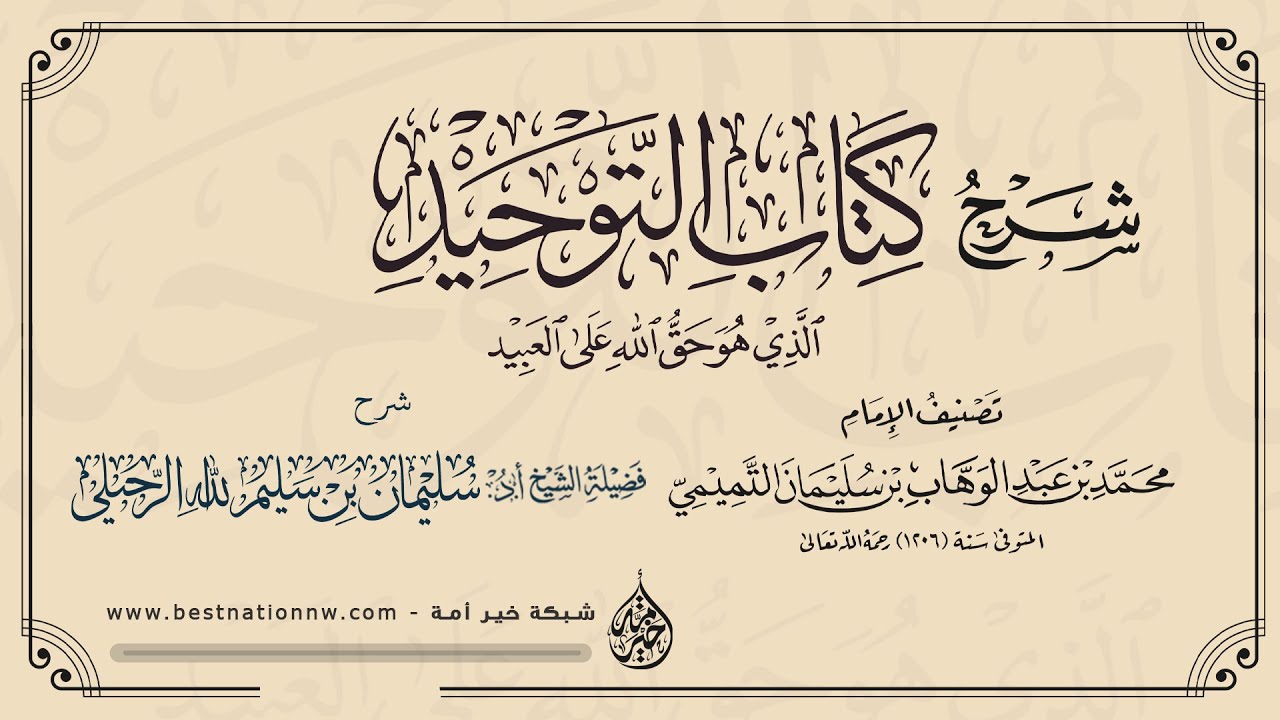 شَرْحُ كِتَابِ التَّوْحِيْدِ
ٱلَّذِيْ هُوَ حَقُّ ٱللهِ عَلَى ٱلعَبِيْدِ
تَصْنِيفُ الإِمَامِ
مُحَمَّدِ بْنِ عَبْدِ الوَهَّابِ بْنِ سُلَيْمَانَ التَّمِيْمِيِّ
المتوفى سَنة (١٢٠٦) رحمَهُ اللهُ تعَالى
شرح
فَضِيْلَةِ الشَّيْخِ أ.د: سُلَيْمَان بْنِ سَلِيْمِ اللهِ الرُّحَيْلِيّ
شبكة خير أمة - www.bestnationnw.com
خير أمة